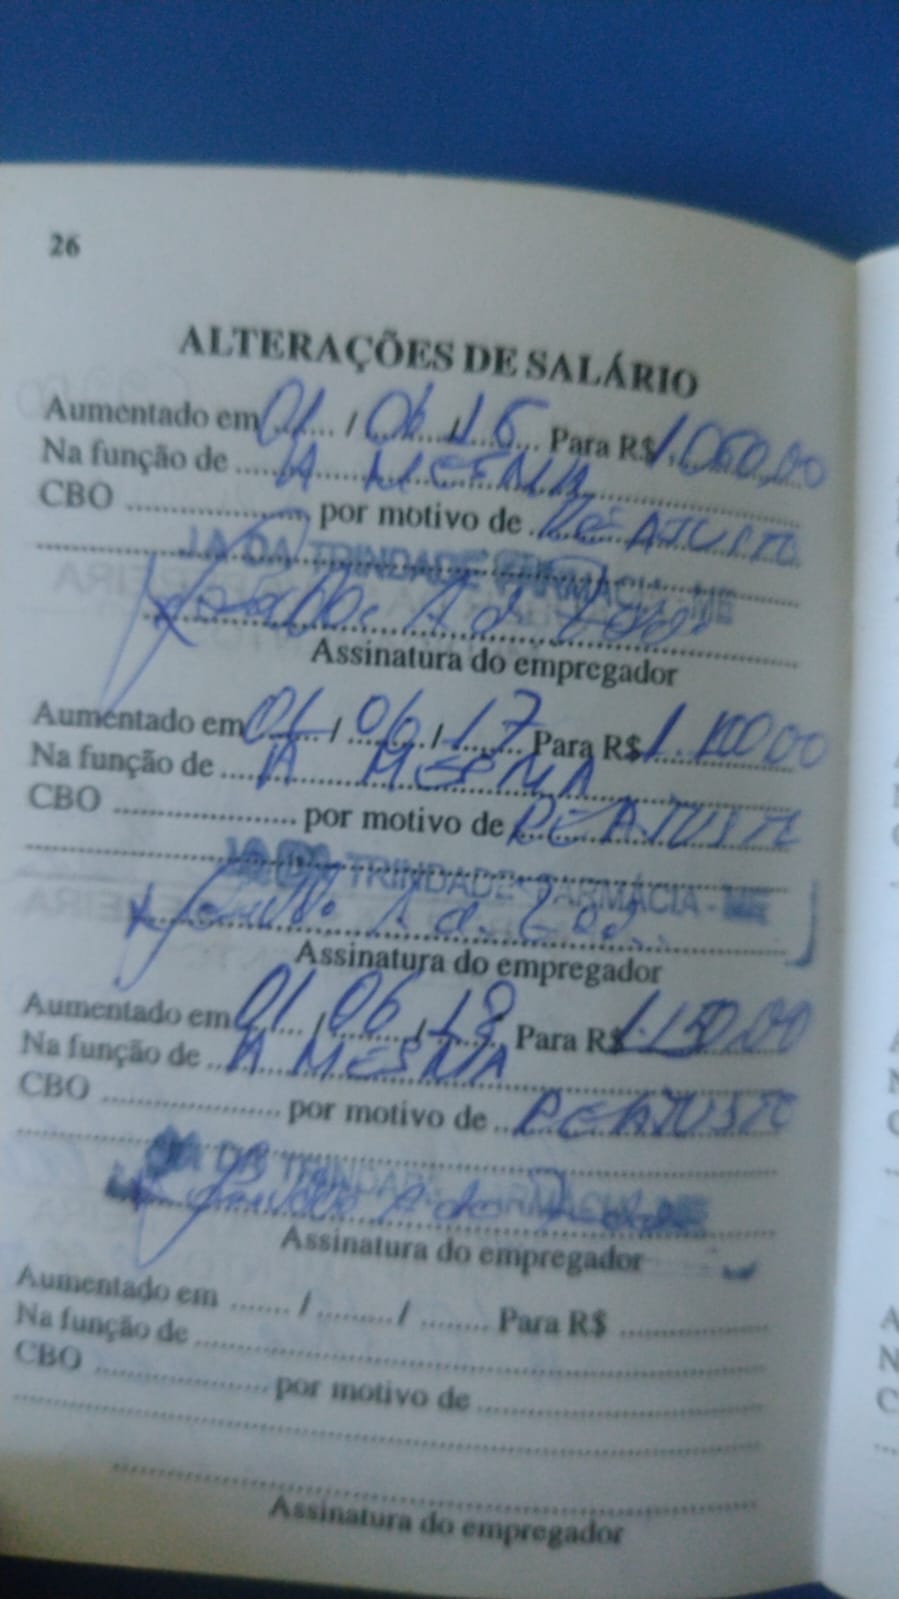 26
ALTERAÇÕES DE SALÁRIO
Aumentado em 01 / 06 / 16 Para R$ 1.050,00
Na função de A MESMA
CBO .................... por motivo de REAJUSTE
J A DA TRINDADE FARMACIA - ME
Assinatura do empregador
Aumentado em 01 / 06 / 17 Para R$ 1.100,00
Na função de A MESMA
CBO .................... por motivo de REAJUSTE
J A DA TRINDADE FARMACIA - ME
Assinatura do empregador
Aumentado em 01 / 06 / 18 Para R$ 1.150,00
Na função de A MESMA
CBO .................... por motivo de REAJUSTE
J A DA TRINDADE FARMACIA - ME
Assinatura do empregador
Aumentado em ....... / ......... / ........ Para R$ ................
Na função de ............................................................
CBO .................... por motivo de ................................
Assinatura do empregador